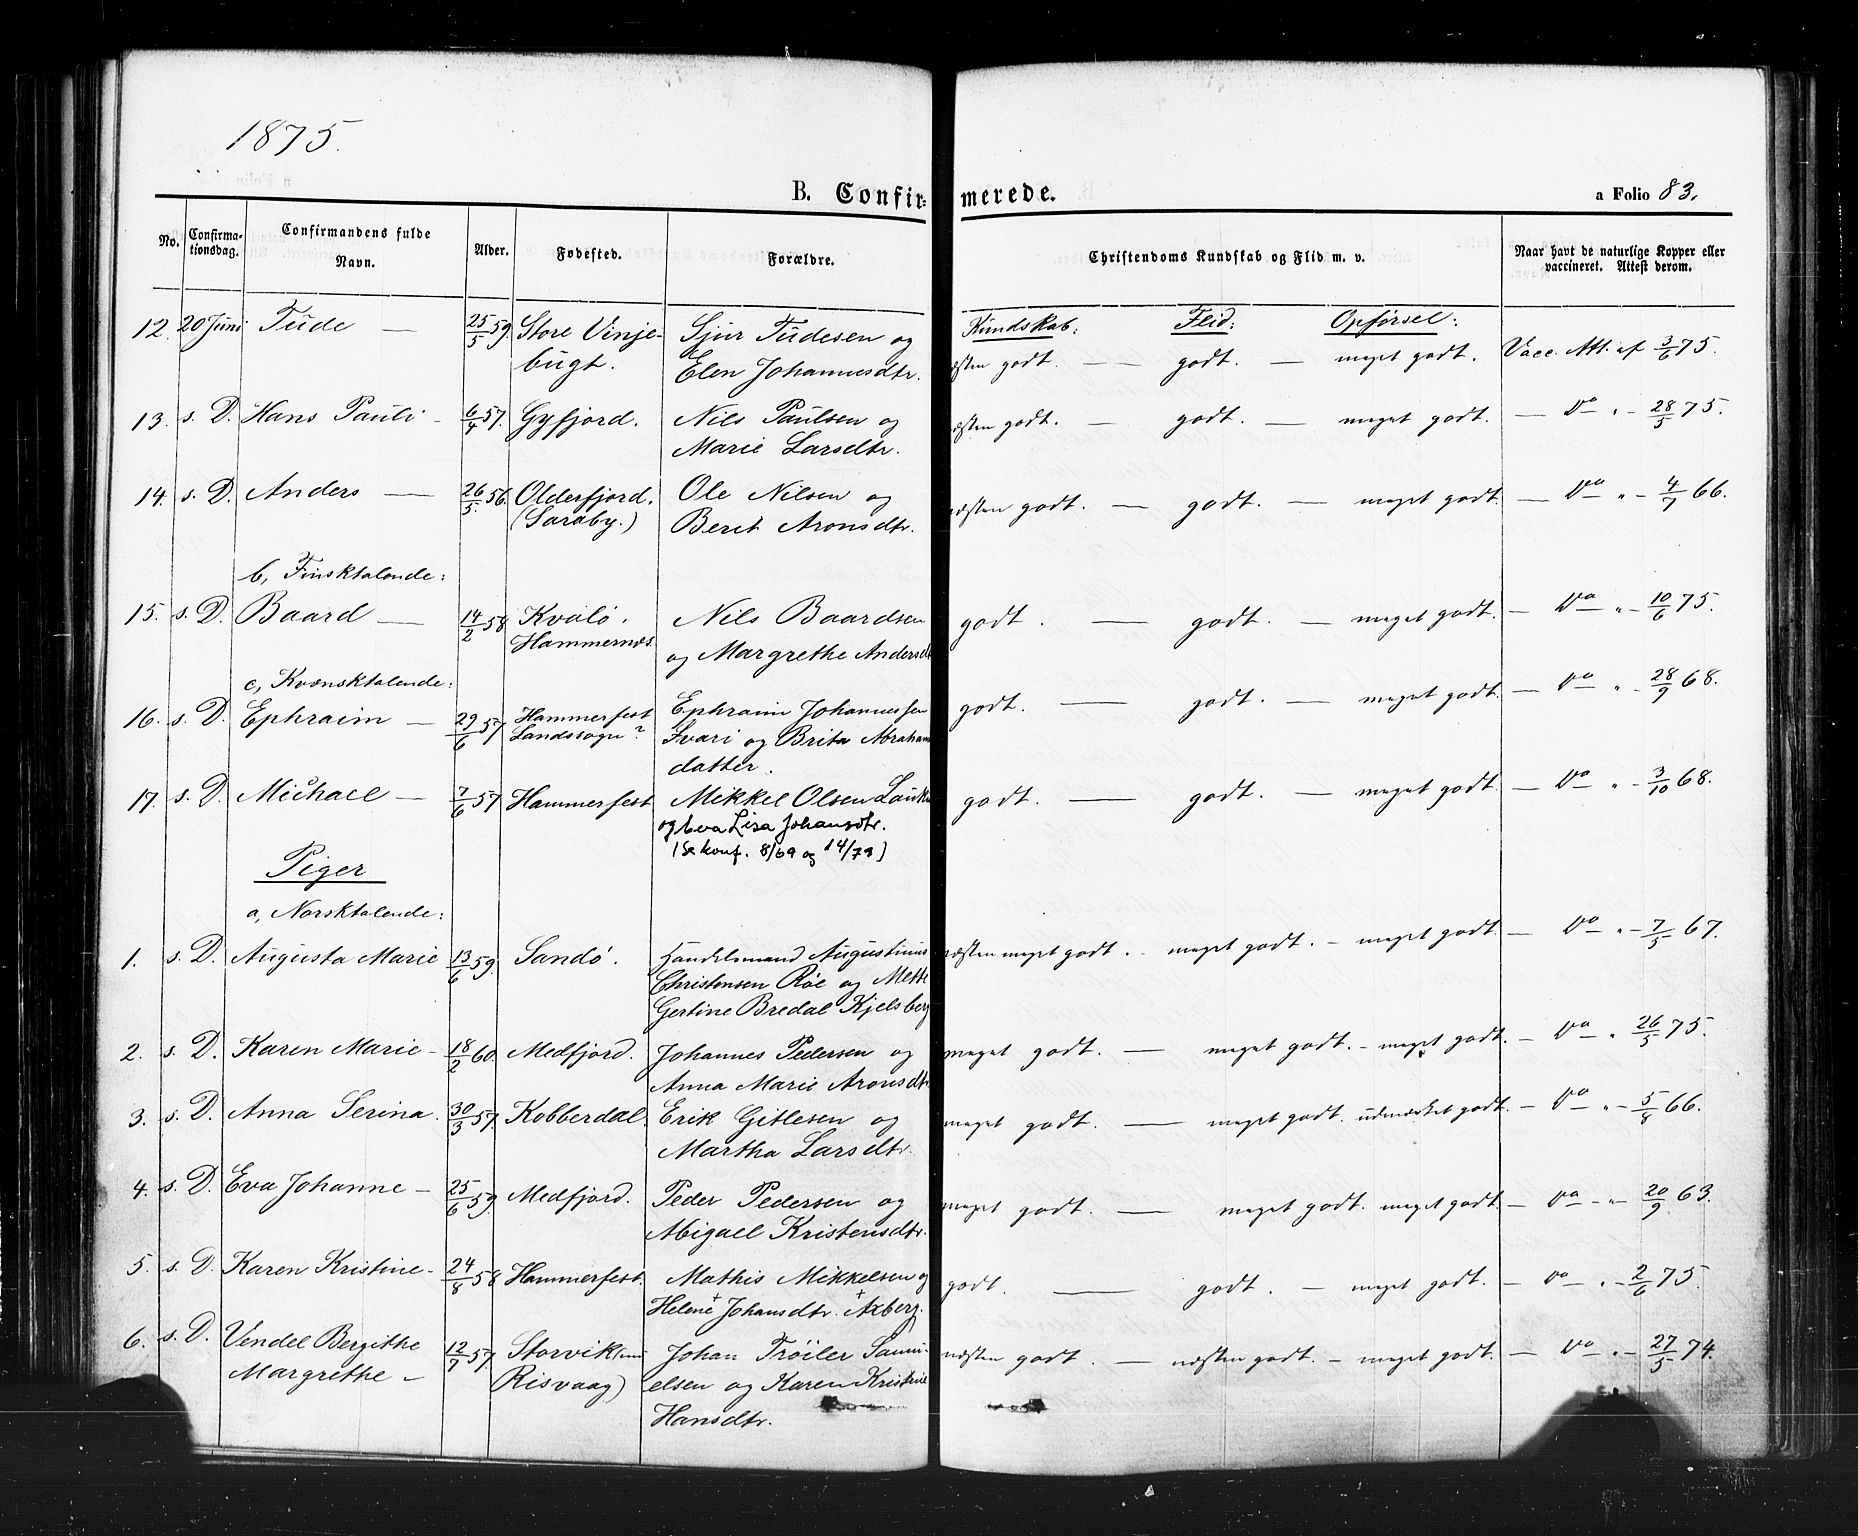 1875.
B. Confirmerede.
a Folio 83.
No. Confirmationsdag. Confirmandens fulde Navn. Alder. Fødested. Forældre. Christendoms Kundskab og Flid m. v. Naar havt de naturlige Kopper eller vaccineret. Attest derom.
Kundskab: Flid: Opførsel:
12. 20 Juni Tude — 25/5 59. Store Vinje- Sjur Tudesen og næsten godt. — — godt. — meget godt. Vacc. Att. af 3/6 75.
bugt. Elen Johannesdtr.
13. s. D. Hans Pauli - 6/4 57. Gyfjord. Nils Paulsen og næsten godt. — godt. — meget godt. — Do " - 28/5 75.
Marie Larsdtr.
14. s. D. Anders — 26/5 56. Olderfjord. Ole Nilsen og næsten godt. — godt. — meget godt. — Do " - 4/7 66.
(Saraby.) Berit Aronsdtr.
b, Finsktalende:
15. s. D. Baard — 14/2 58 Kvalö. Nils Baardsen godt. — godt. — meget godt. — Do " - 10/6 75.
Hammernæs og Margrethe Andersdt
c, Kvænsktalende:
16. s. D. Ephraim — 29/6 57 Hammerfest Ephraim Johannessen godt. — godt. — meget godt. — Do " - 28/9 68.
Landssogn? Ivari og Brita Abraham
datter.
17. s. D. Michael — 7/6 57 Hammerfest Mikkel Olsen godt. — godt. — meget godt. — Do " - 3/10 68.
og Eva Lisa Johansdtr.
(Se konf. 8/69 og 14/79)
Piger
a, Norsktalende:
1. s. D. Augusta Marie 13/6 59. Sandö. Handelsmand Augustinus næsten meget godt. - meget godt. - meget godt. — Do " - 7/5 67.
Christensen Röe og Mette
Gertine Bredal Kjelsberg
2. s. D. Karen Marie - 18/2 60. Medfjord. Johannes Pedersen og meget godt. — meget godt. - meget godt. — Do " 26/5 75.
Anna Marie Aronsdtr
3. s. D. Anna Serina. 30/3 57 Kobberdal. Erik Gitlesen og meget godt. — meget godt. udmærket godt. — Do " - 5/8 66.
Martha Larsdtr.
4. s. D. Eva Johanne - 25/6 59. Medfjord. Peder Pedersen og meget godt. — meget godt. meget godt. — Do - " - 20/9 63.
Abigael Kristensdtr.
5. s. D. Karen Kristine - 24/8 58 Hammerfest. Mathis Mikkelsen og godt. — godt. — meget godt. — Do " - 2/6 75.
Helene Johansdtr. Axberg.
6. s. D. Vendel Bergithe 12/7 57 Storvik Johan Tröiler Samu- næsten godt. — næsten godt. - meget godt. — Do " - 27/5 74.
Margrethe — Risvaag) elsen og Karen Kristine
Hansdtr.